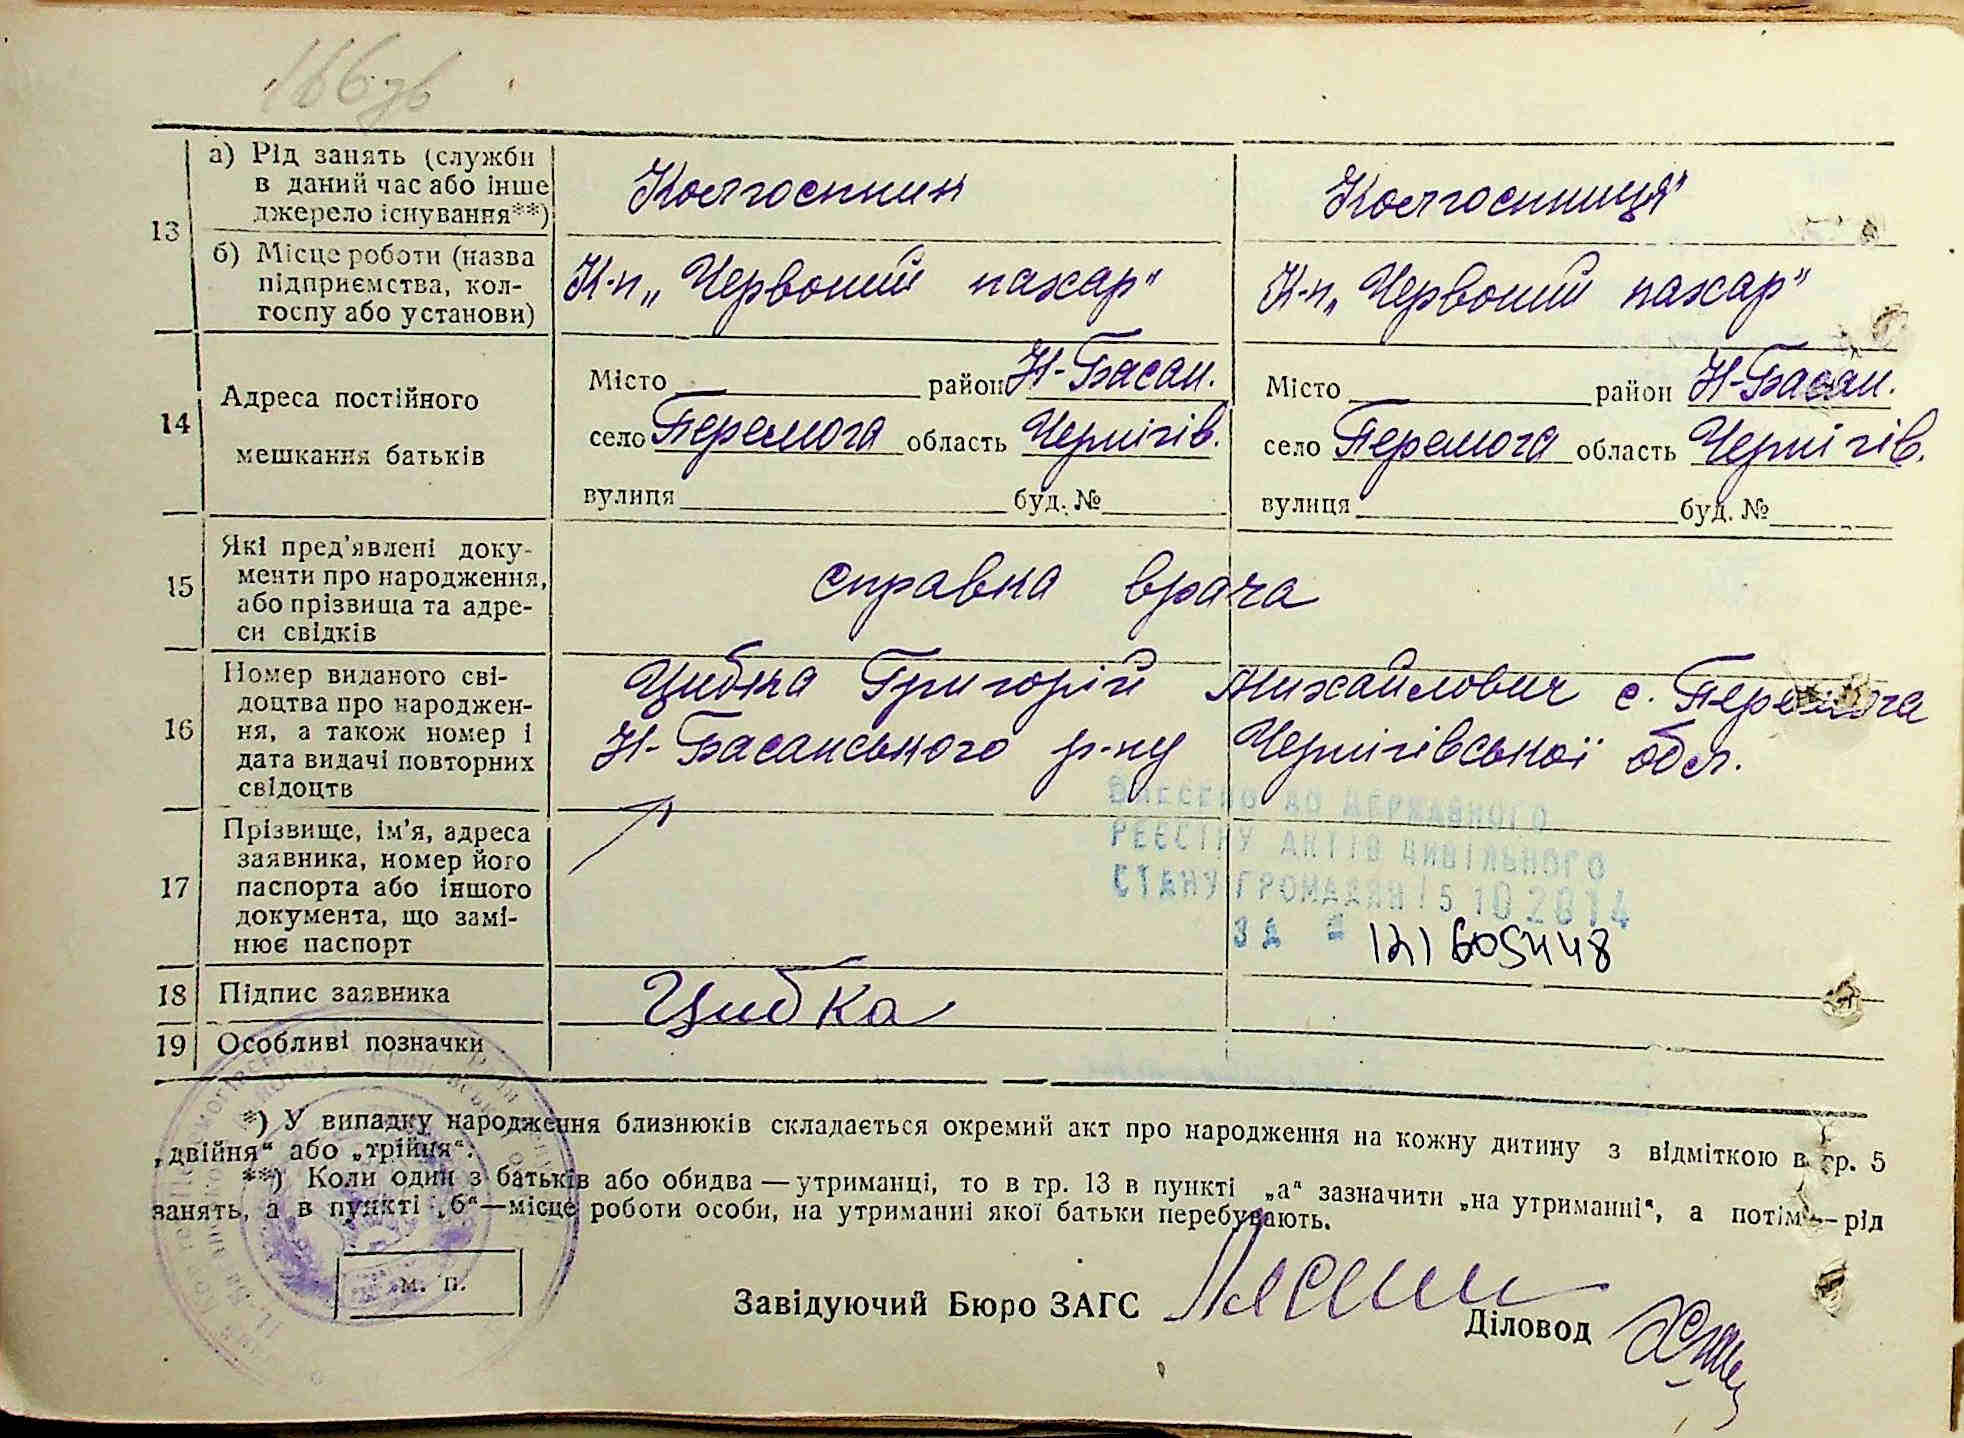 166 зв
13
а) Рід занять (служби
в даний час або інше
джерело існування**)
Колгоспник
Колгоспниця
б) Місце роботи (назва
підприємства, кол-
госпу або установи)
К-п „Червоний пахар"
К-п „Червоний пахар"
14
Адреса постійного
мешкання батьків
Місто район Н-Басан.
село Перемога область Чернігів.
вулиця буд. №
Місто район Н-Басан.
село Перемога область Чернігів.
вулиця буд. №
15
Які пред'явлені доку-
менти про народження,
або прізвища та адре-
си свідків
справка врача
16
Номер виданого сві-
доцтва про народжен-
ня, а також номер і
дата видачі повторних
свідоцтв
Цибка Григорій Михайлович с. Перемога
Н-Басанського р-ну Чернігівської обл.
17
Прізвище, ім'я, адреса
заявника, номер його
паспорта або іншого
документа, що замі-
нює паспорт
ВНЕСЕНО ДО ДЕРЖАВНОГО
РЕЄСТРУ АКТІВ ЦИВІЛЬНОГО
СТАНУ ГРОМАДЯН 15 10 2014
ЗА №
18 Підпис заявника
Цибка
19 Особливі позначки
*) У випадку народження близнюків складається окремий акт про народження на кожну дитину з відміткою в гр. 5
„двійня" або „трійня".
**) Коли один з батьків або обидва — утриманці, то в гр. 13 в пункті „а" зазначити „на утриманні", а потім — рід
занять, а в пункті „б"—місце роботи особи, на утриманні якої батьки перебувають.
м. п.
Завідуючий Бюро ЗАГС
Діловод